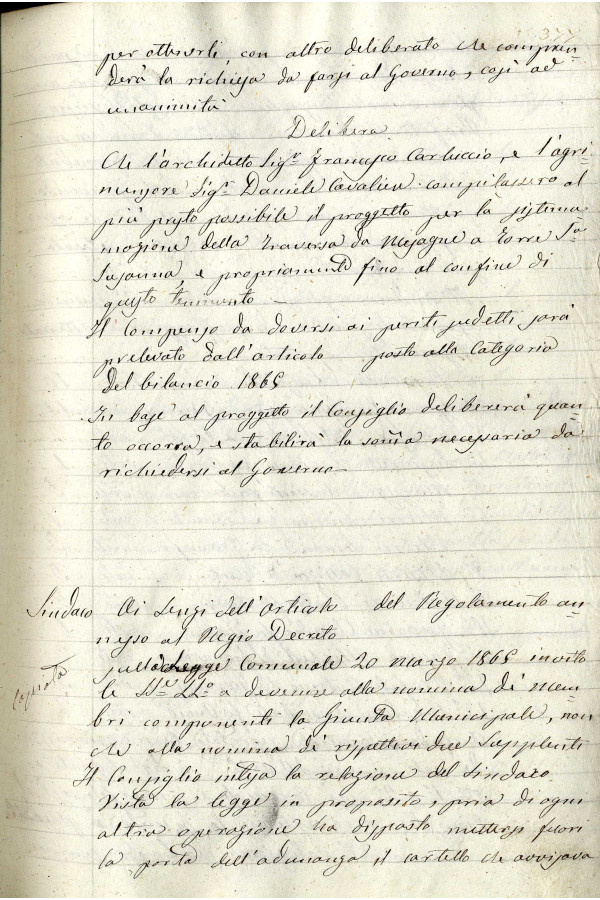 377
per ottenerli, con altro deliberato che compren=
derà la richiesta da farsi al Governo, così ad
unanimità
Delibera
Che l'architetto Sigr. Francesco Carluccio, e l'agri=
mensore Sigr. Daniele Cavaliere compilassero al
più presto possibile il proggetto per la sistema=
mazione della traversa da Mesagne a Torre Sa=
Susanna, e propriamente fino al confine di
questo tenimento —
Il Compenso da doversi ai periti sudetti sarà
prelevato dall'articolo posto alla Categoria
del bilancio 1865
In base al proggetto il Consiglio delibererà quan=
to occorra, e stabilirà la somma necessaria da
richiedersi al Governo —
Sindaco Ai sensi dell'articolo del Regolamento an=
nesso al Regio Decreto
sulla Legge Comunale 20 Marzo 1865 invito
Copiata
le SS.e LL.o a devenire alla nomina di mem=
bri componenti la Giunta Municipale, non
che alla nomina di rispettivi due Supplenti
Il Consiglio intesa la relazione del Sindaco.
Vista la legge in proposito, pria di ogni
altra operazione ha disposto mettersi fuori
la porta dell'adunanza, il cartello che avvisava